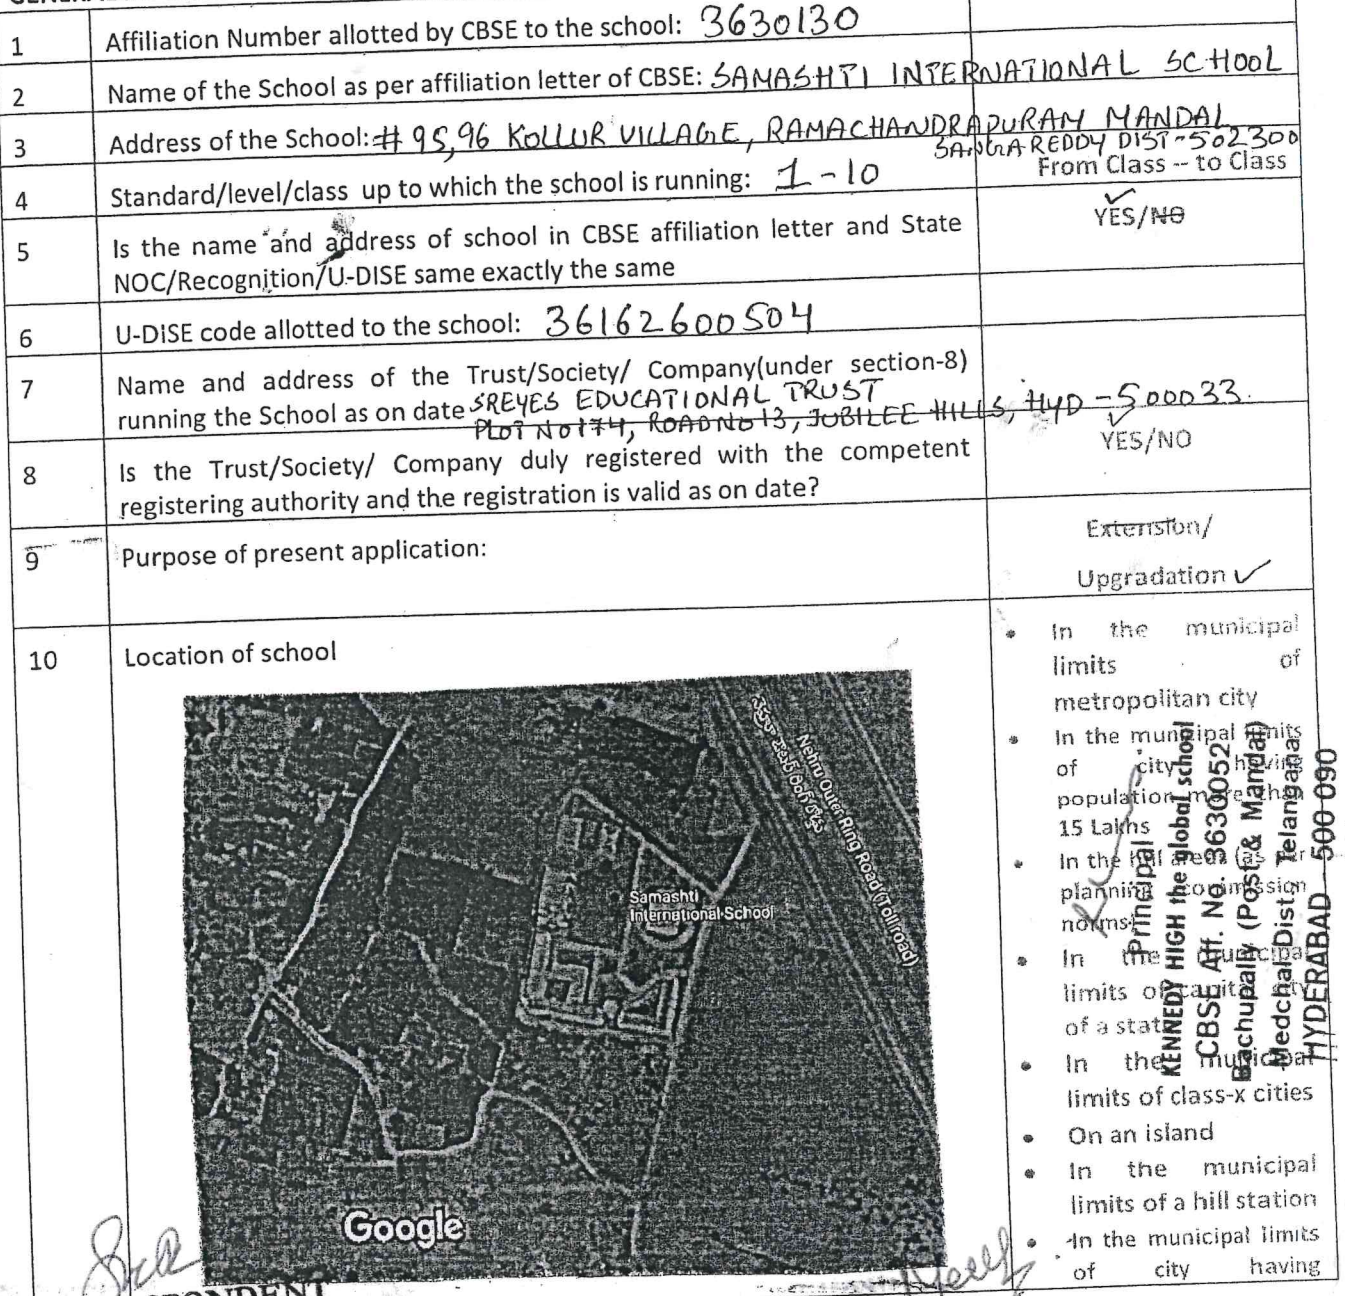 1 Affiliation Number allotted by CBSE to the school: 3630130
2 Name of the School as per affiliation letter of CBSE: SAMASHTI INTERNATIONAL SCHOOL
3 Address of the School: # 95,96 KOLLUR VILLAGE, RAMACHANDRAPURAM MANDAL
SANGAREDDY DIST-502300
4 Standard/level/class up to which the school is running: 1-10
From Class -- to Class
5 Is the name and address of school in CBSE affiliation letter and State
NOC/Recognition/U-DISE same exactly the same
YES/NO
6 U-DISE code allotted to the school: 36162600504
7 Name and address of the Trust/Society/ Company(under section-8)
running the School as on date SREYES EDUCATIONAL TRUST
PLOT NO 174, ROAD NO 13, JUBILEE HILLS, HYD-500033.
8 Is the Trust/Society/ Company duly registered with the competent
registering authority and the registration is valid as on date?
YES/NO
9 Purpose of present application:
Extension/
Upgradation ✓
10 Location of school
Nehru Outer Ring Road(Tollroad)
Samashti
International School
Google
• In the municipal
limits of
metropolitan city
• In the municipal limits
of city having
population more than
15 Lakhs
• In the hill area (as per
planning commission
norms)
• In the municipal
limits of capital city
of a state
• In the municipal
limits of class-x cities
• On an island
• In the municipal
limits of a hill station
• In the municipal limits
of city having
Principal
KENNEDY HIGH the global school
CBSE Aff. No. 3630052
Bachupally (Post & Mandal)
Medchal Dist. Telangana
HYDERABAD - 500 090